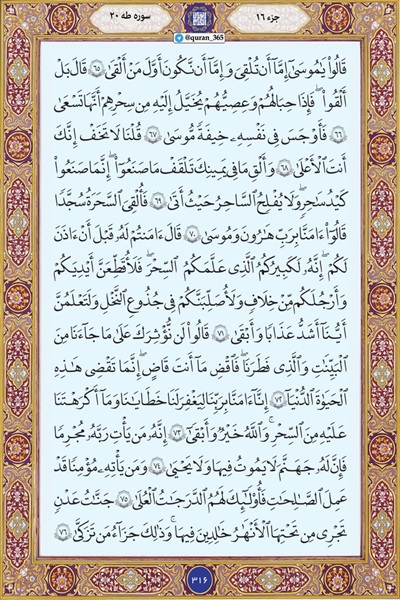 جزء ۱۶
@quran_365
سوره طه ۲۰
قَالُوا۟ يَـٰمُوسَىٰٓ إِمَّآ أَن تُلْقِىَ وَإِمَّآ أَن نَّكُونَ أَوَّلَ مَنْ أَلْقَىٰ ۝٦٥ قَالَ بَلْ
أَلْقُوا۟ ۖ فَإِذَا حِبَالُهُمْ وَعِصِيُّهُمْ يُخَيَّلُ إِلَيْهِ مِن سِحْرِهِمْ أَنَّهَا تَسْعَىٰ
۝٦٦ فَأَوْجَسَ فِى نَفْسِهِۦ خِيفَةً مُّوسَىٰ ۝٦٧ قُلْنَا لَا تَخَفْ إِنَّكَ
أَنتَ ٱلْأَعْلَىٰ ۝٦٨ وَأَلْقِ مَا فِى يَمِينِكَ تَلْقَفْ مَا صَنَعُوٓا۟ ۖ إِنَّمَا صَنَعُوا۟
كَيْدُ سَـٰحِرٍ ۖ وَلَا يُفْلِحُ ٱلسَّاحِرُ حَيْثُ أَتَىٰ ۝٦٩ فَأُلْقِىَ ٱلسَّحَرَةُ سُجَّدًا
قَالُوٓا۟ ءَامَنَّا بِرَبِّ هَـٰرُونَ وَمُوسَىٰ ۝٧٠ قَالَ ءَامَنتُمْ لَهُۥ قَبْلَ أَنْ ءَاذَنَ
لَكُمْ ۖ إِنَّهُۥ لَكَبِيرُكُمُ ٱلَّذِى عَلَّمَكُمُ ٱلسِّحْرَ ۖ فَلَأُقَطِّعَنَّ أَيْدِيَكُمْ
وَأَرْجُلَكُم مِّنْ خِلَـٰفٍ وَلَأُصَلِّبَنَّكُمْ فِى جُذُوعِ ٱلنَّخْلِ وَلَتَعْلَمُنَّ
أَيُّنَآ أَشَدُّ عَذَابًا وَأَبْقَىٰ ۝٧١ قَالُوا۟ لَن نُّؤْثِرَكَ عَلَىٰ مَا جَآءَنَا مِنَ
ٱلْبَيِّنَـٰتِ وَٱلَّذِى فَطَرَنَا ۖ فَٱقْضِ مَآ أَنتَ قَاضٍ ۖ إِنَّمَا تَقْضِى هَـٰذِهِ
ٱلْحَيَوٰةَ ٱلدُّنْيَآ ۝٧٢ إِنَّآ ءَامَنَّا بِرَبِّنَا لِيَغْفِرَ لَنَا خَطَـٰيَـٰنَا وَمَآ أَكْرَهْتَنَا
عَلَيْهِ مِنَ ٱلسِّحْرِ ۗ وَٱللَّهُ خَيْرٌ وَأَبْقَىٰٓ ۝٧٣ إِنَّهُۥ مَن يَأْتِ رَبَّهُۥ مُجْرِمًا
فَإِنَّ لَهُۥ جَهَنَّمَ لَا يَمُوتُ فِيهَا وَلَا يَحْيَىٰ ۝٧٤ وَمَن يَأْتِهِۦ مُؤْمِنًا قَدْ
عَمِلَ ٱلصَّـٰلِحَـٰتِ فَأُو۟لَـٰٓئِكَ لَهُمُ ٱلدَّرَجَـٰتُ ٱلْعُلَىٰ ۝٧٥ جَنَّـٰتُ عَدْنٍ
تَجْرِى مِن تَحْتِهَا ٱلْأَنْهَـٰرُ خَـٰلِدِينَ فِيهَا ۚ وَذَٰلِكَ جَزَآءُ مَن تَزَكَّىٰ ۝٧٦
۳۱۶